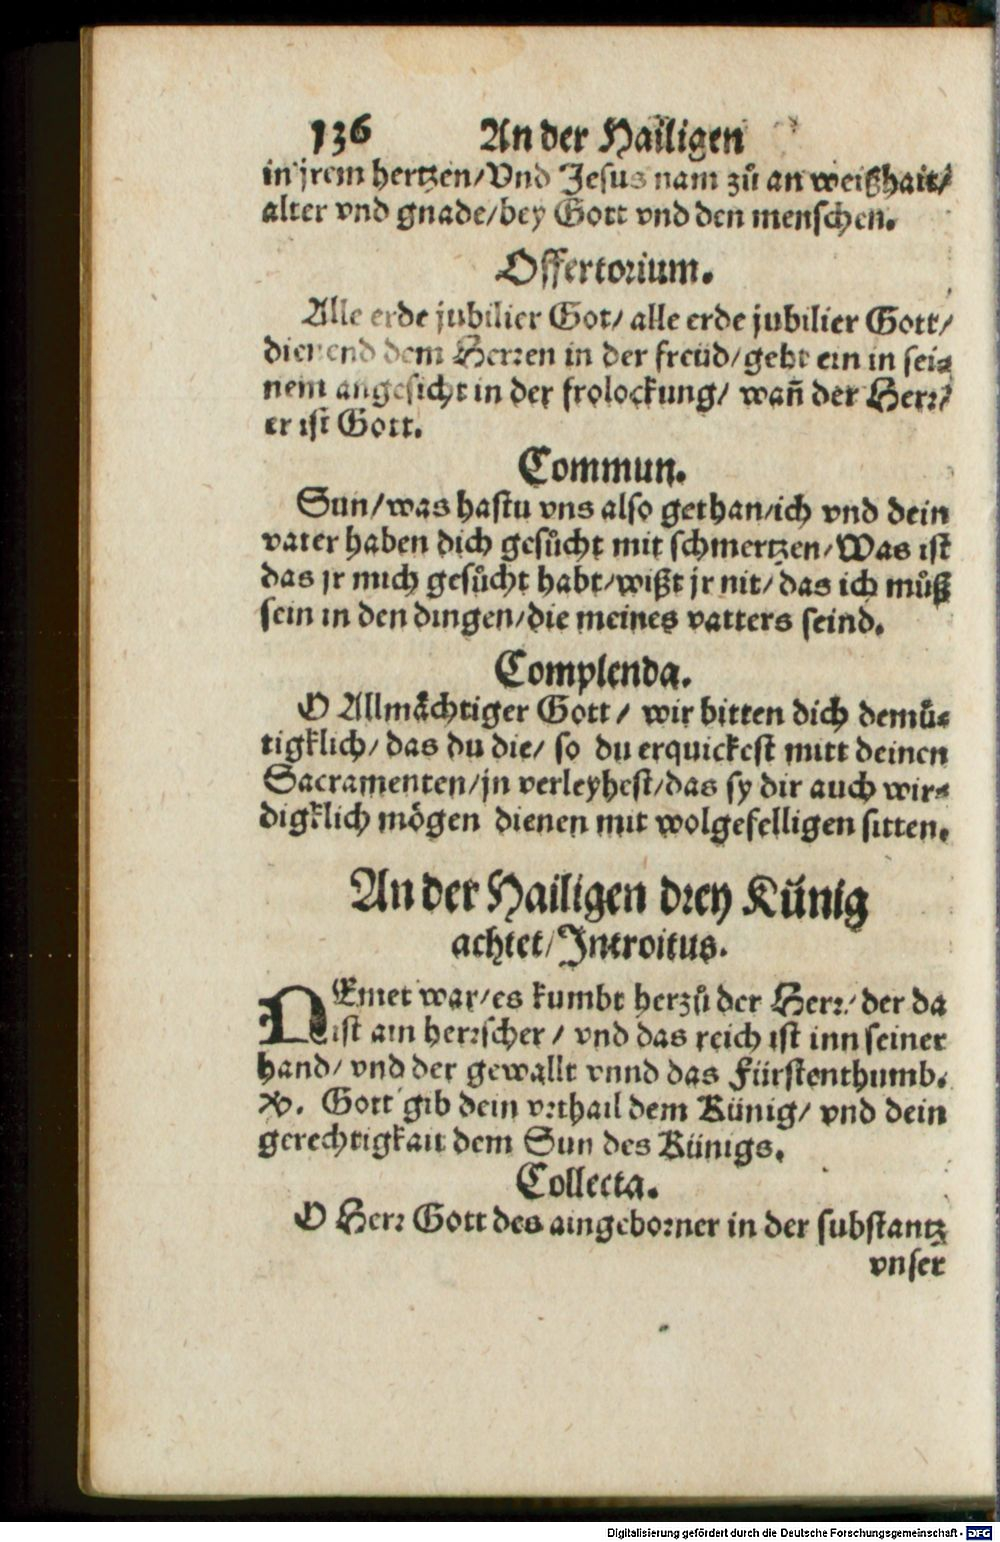 136 An der Hailigen
in jrem hertzen/Vnd Jesus nam zuͦ an weißhait/
alter vnd gnade/bey Gott vnd den menschen.
Offertorium.
Alle erde jubilier Got/ alle erde jubilier Gott/
dienend dem Herren in der freüd/geht ein in sei⸗
nem angesicht in der frolockung/ wañ der Herr/
er ist Gott.
Commun.
Sun/was hastu vns also gethan/ich vnd dein
vater haben dich gesuͦcht mit schmertzen/Was ist
das jr mich gesuͦcht habt/wißt jr nit/das ich muͦß
sein in den dingen/die meines vatters seind.
Complenda.
O Allmaͤchtiger Gott/ wir bitten dich demuͤ⸗
tigklich/das du die/ so du erquickest mitt deinen
Sacramenten/jn verleyhest/das sy dir auch wir⸗
digklich moͤgen dienen mit wolgefelligen sitten.
An der Hailigen drey Künig
achtet/Introitus.
NEmet war/es kumbt herzuͦ der Herr/der da
ist ain herrscher/ vnd das reich ist inn seiner
hand/vnd der gewallt vnnd das Fürstenthumb.
℣. Gott gib dein vrthail dem Künig/ vnd dein
gerechtigkait dem Sun des Künigs.
Collecta.
O Herr Gott des aingeborner in der substantz
vnser
Digitalisierung gefördert durch die Deutsche Forschungsgemeinschaft - DFG